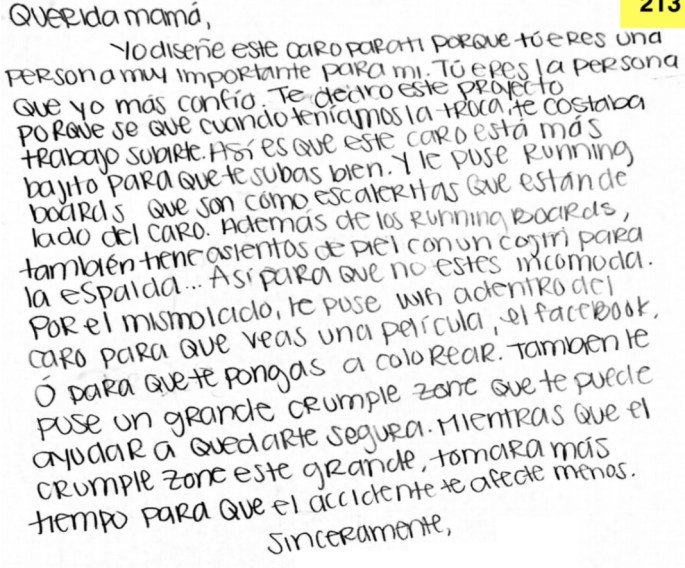 213
Querida mamá,
Yo diseñe este caro para ti porque tú eres una
persona muy importante para mi. Tú eres la persona
que yo más confío. Te dedico este proyecto
porque se que cuando teníamos la troca, te costaba
trabajo subirte. Así es que este caro está más
bajito para que te subas bien. Y le puse Running
boards que son como escaleritas que están de
lado del caro. Además de los Running Boards,
también tiene asientos de piel con un cojín para
la espalda... Así para que no estes incomoda.
Por el mismo lado, le puse wifi adentro del
caro para que veas una película, el facebook,
Ó para que te pongas a colorear. Tambien le
puse un grande crumple zone que te puede
ayudar a quedarte segura. Mientras que el
crumple zone este grande, tomara más
tiempo para que el accidente te afecte menos.
Sinceramente,